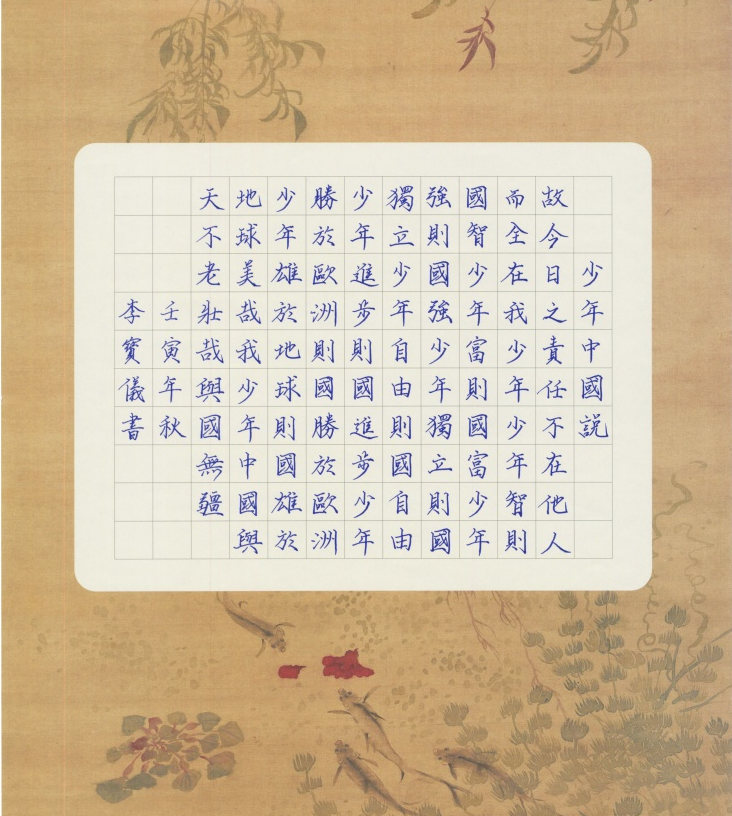 少年中國説
故今日之責任不在他人
而全在我少年少年智則
國智少年富則國富少年
強則國強少年獨立則國
獨立少年自由則國自由
少年進步則國進步少年
勝於歐洲則國勝於歐洲
少年雄於地球則國雄於
地球美哉我少年中國與
天不老壯哉與國無疆
壬寅年秋
李寳儀書